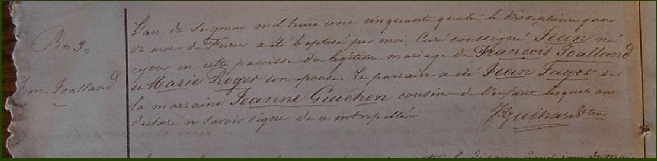 B. 3.
Jean Joalland
L'an de Seigneur mil trois cent cinquante quatre le deuxième jour
du mois de Fevrier a été baptisé par moi, Curé soussigné Jean né
ce jour en cette paroisse du légitime mariage de François Joalland
et Marie Roger son épouse. Le parrain a été Jean Fagot et
la marraine Jeanne Guichon cousine de l'enfant lesquels ont
déclaré ne savoir signer de ce interpellés
J. Guihard